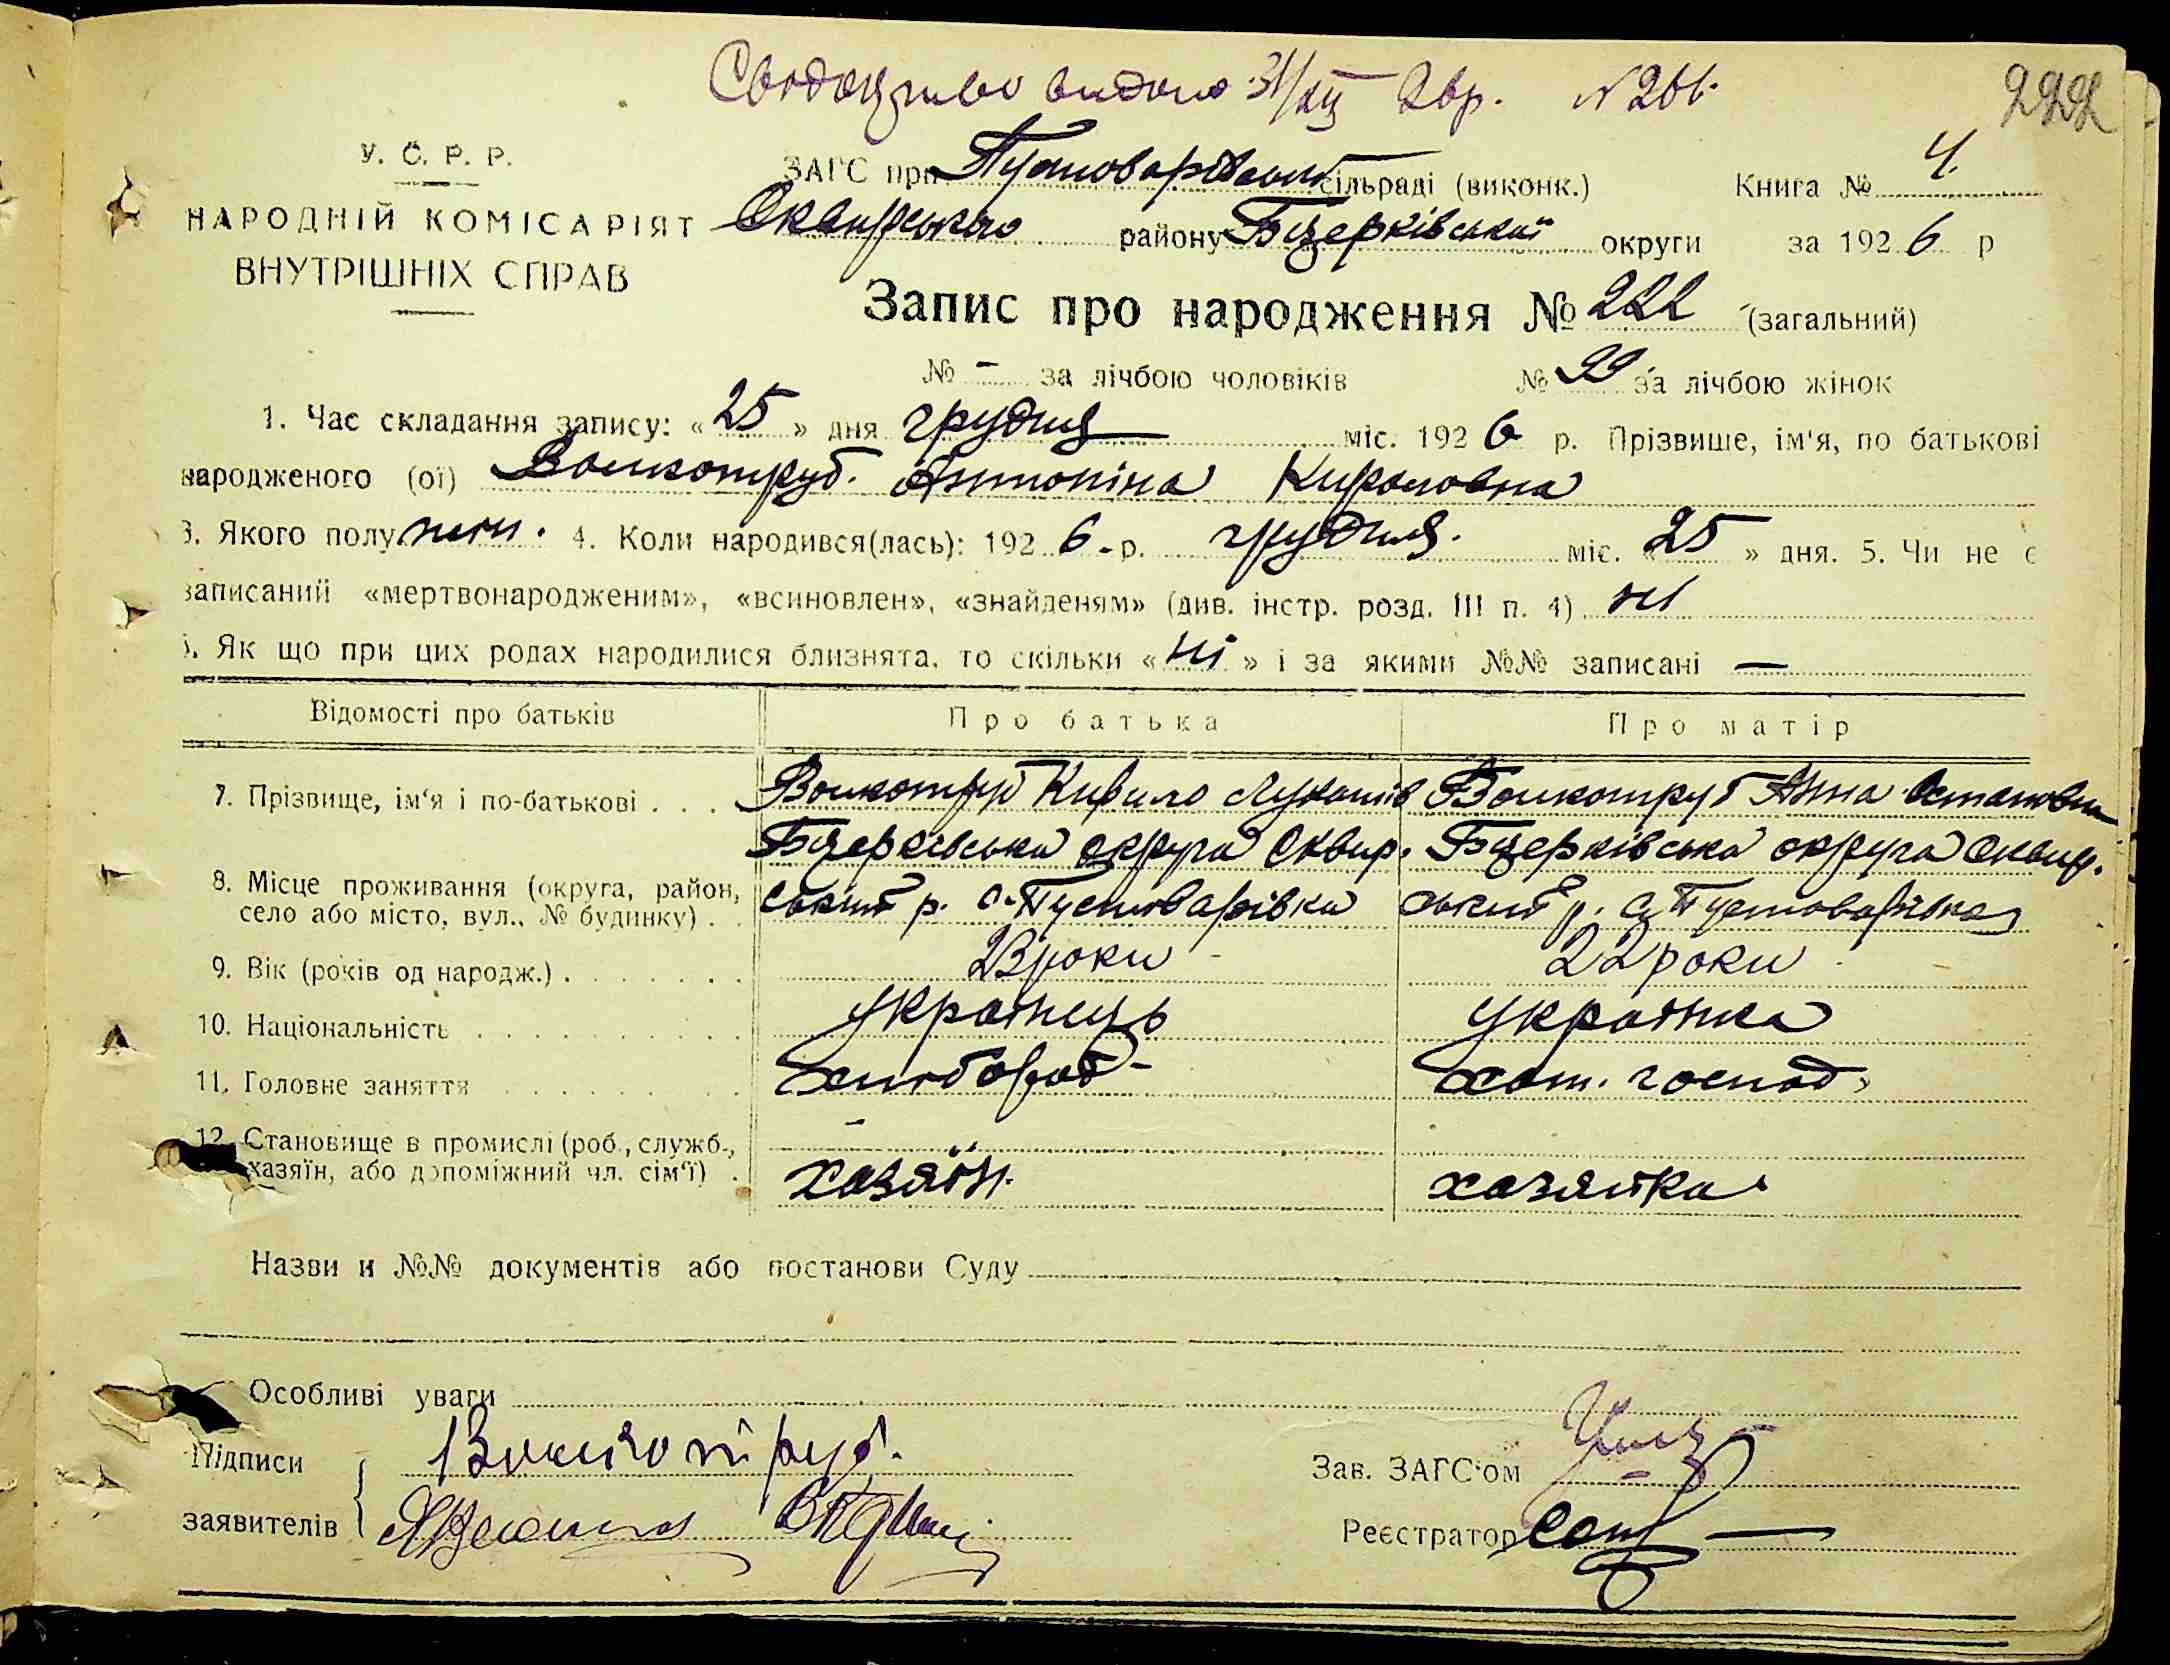 Свідоцтво видано 31/XII 26р. N 261.
222
У. С. Р. Р.
НАРОДНІЙ КОМІСАРІЯТ
ВНУТРІШНІХ СПРАВ
ЗАГС при Пустоварівській сільраді (виконк.) Книга № 4.
Сквирського району Бцерківської округи за 1926 р
Запис про народження № 222 (загальний)
№ - за лічбою чоловіків № 99 за лічбою жінок
1. Час складання запису: «25» дня грудня міс. 1926 р. Прізвище, ім'я, по батькові
народженого (ої) Вовкотруб. Антоніна Кириловна
3. Якого полу жін. 4. Коли народився(лась): 1926 р. грудня. міс. «25» дня. 5. Чи не є
записаний «мертвонародженим», «всиновлен», «знайденям» (див. інстр. розд. III п. 4) ні
6. Як що при цих родах народилися близнята, то скільки «ні» і за якими №№ записані —
Відомості про батьків Про батька Про матір
7. Прізвище, ім'я і по-батькові . . . Вовкотруб Кирило Лукашів Вовкотруб Анна Остаповна
Бцерківська округа Сквир. Бцерківська округа Сквир.
8. Місце проживання (округа, район,
село або місто, вул., № будинку) . ський р. с. Пустоварівка ський р. с. Пустоварівка
9. Вік (років од народж.) . . . . . . . 23 роки 22 роки
10. Національність . . . . . . . . . українець українка
11. Головне заняття . . . . . . . . хлібороб- хат. господ.
12. Становище в промислі (роб., служб.,
хазяїн, або допоміжний чл. сім'ї) . хазяїн. хазяйка.
Назви и №№ документів або постанови Суду
Особливі уваги
Підписи Вовкотруб.
Зав. ЗАГС'ом
заявителів
Реєстратор